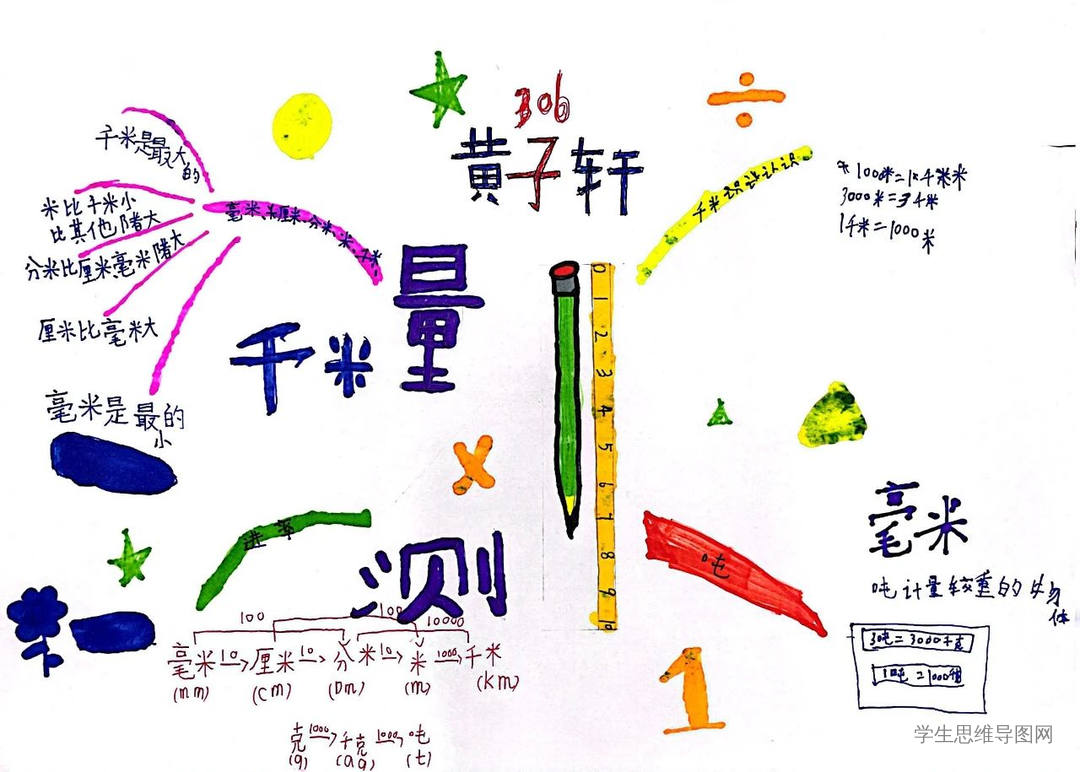 306
黄子轩
千米是最大的
米比千米小
比其他都大
分米比厘米,毫米都大
厘米比毫米大
毫米是最小的
毫米,厘米,分米,米,千米
量
千米
千米的认识
1000米=1千米
3000米=3千米
1千米=1000米
0 1 2 3 4 5 6 7 8 9 10
进率
测
吨
毫米
吨计量较重的物体
3吨=3000千克
1吨=1000千克
100 100 10000
毫米 10 厘米 10 分米 10 米 1000 千米
(mm) (cm) (Dm) (m) (km)
克 1000 千克 1000 吨
(g) (t)
1
学生思维导图网